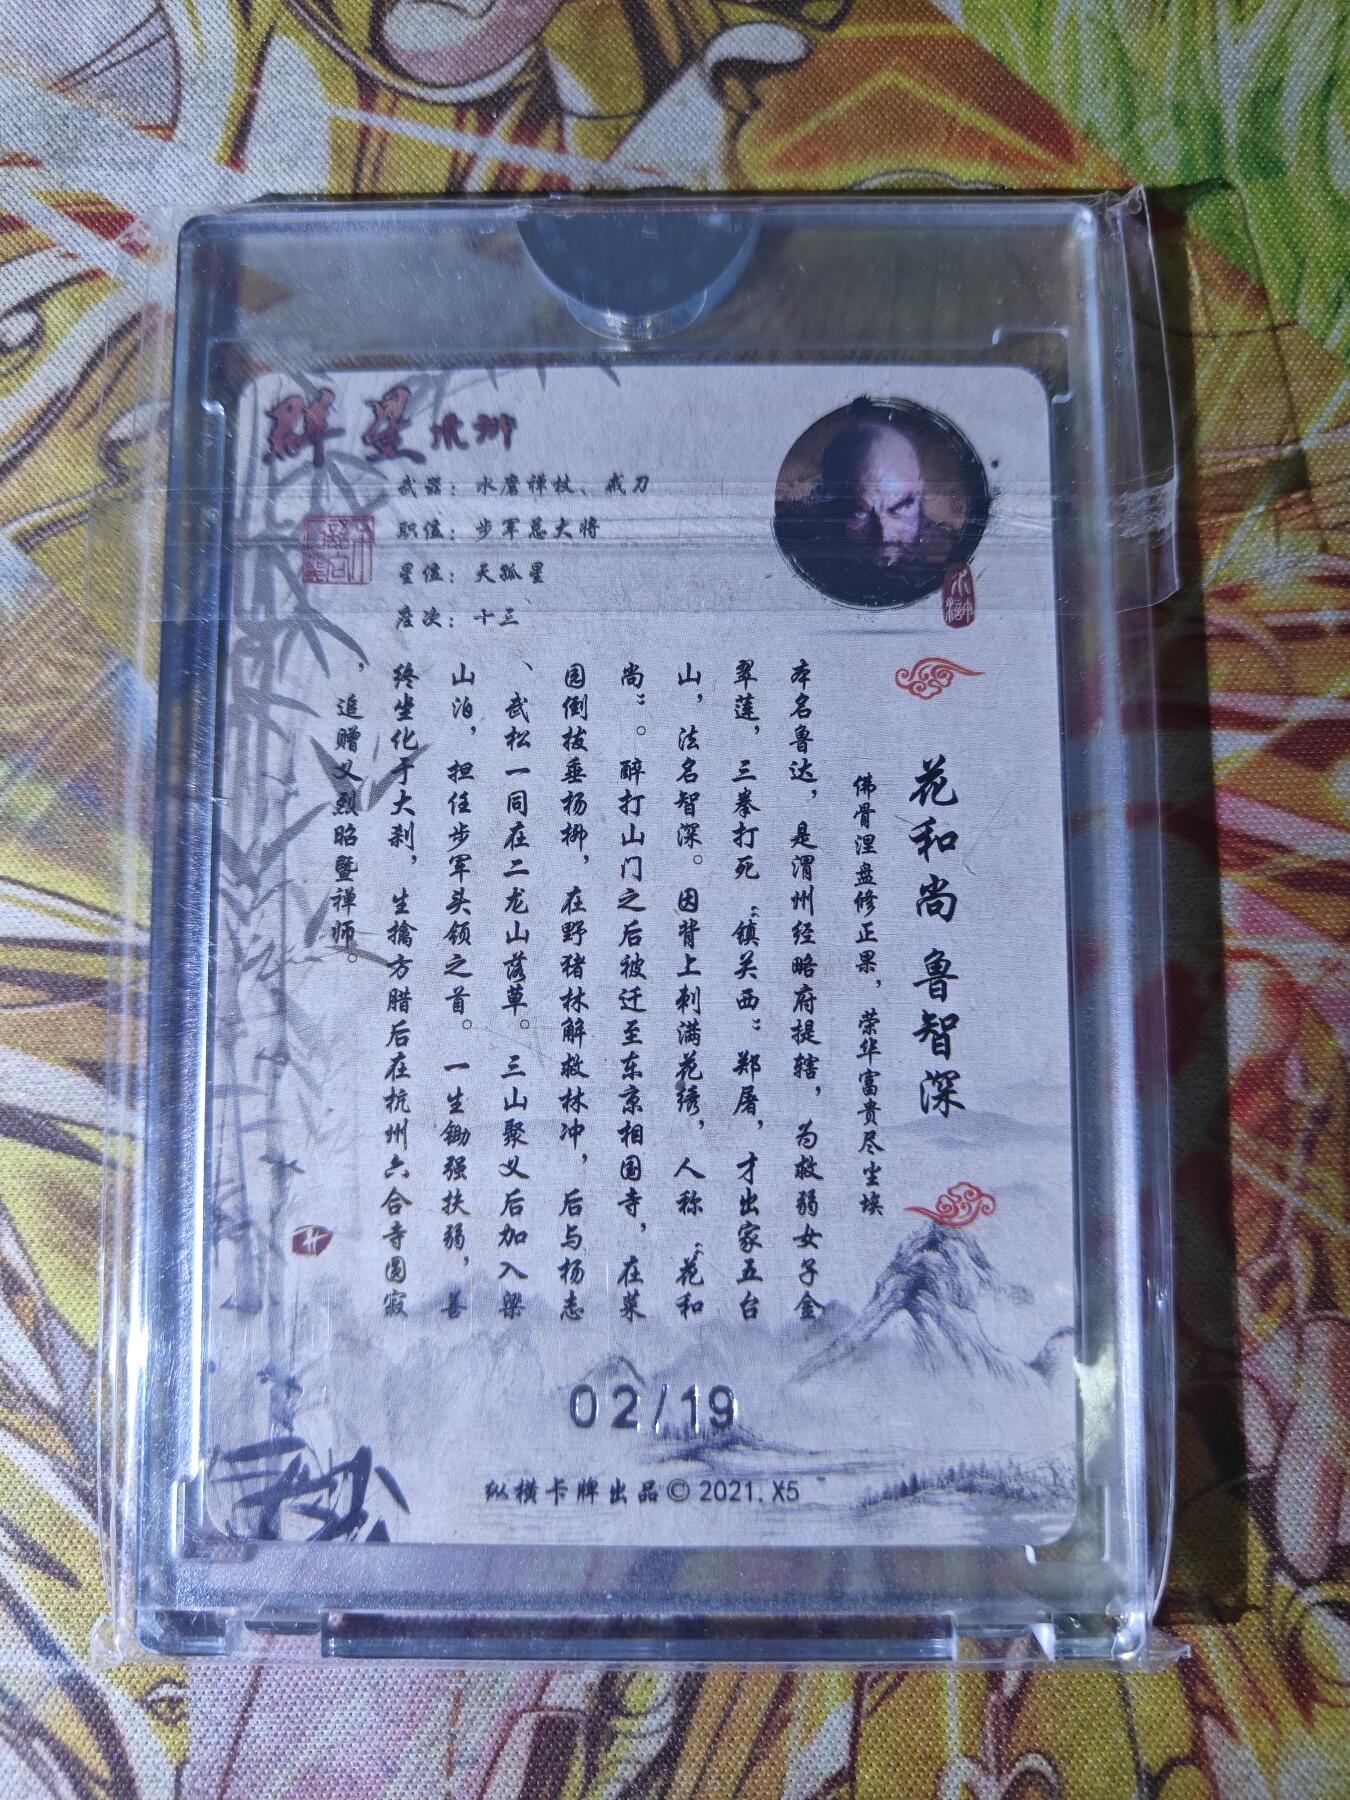 群星水浒
武器：水磨禅杖、戒刀
职位：步军总大将
星位：天孤星
座次：十三
水浒
花和尚 鲁智深
佛骨涅盘修正果，荣华富贵尽尘埃
本名鲁达，是渭州经略府提辖，为救弱女子金
翠莲，三拳打死“镇关西”郑屠，才出家五台
山，法名智深。因背上刺满花绣，人称“花和
尚”。醉打山门之后被迁至东京相国寺，在菜
园倒拔垂杨柳，在野猪林解救林冲，后与杨志
、武松一同在二龙山落草。三山聚义后加入梁
山泊，担任步军头领之首。一生锄强扶弱，善
终坐化于大刹，生擒方腊后在杭州六合寺圆寂
，追赠义烈昭暨禅师。
02/19
纵横卡牌出品©2021.X5